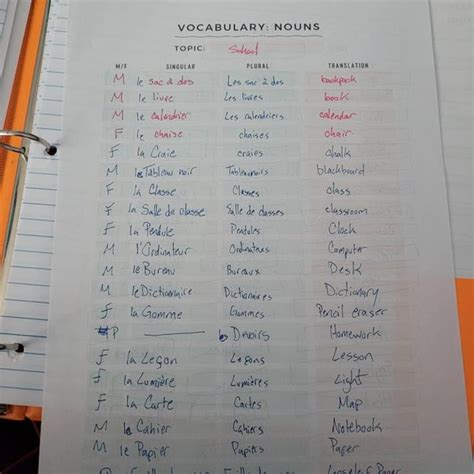 VOCABULARY: NOUNS
TOPIC: School
M/F SINGULAR PLURAL TRANSLATION
M le sac à dos Les sac à dos backpack
M le livre Les livres book
M le calendrier Les calendriers calendar
F le chaise chaises chair
F la Craie craies chalk
M le Tableau noir Tableau noirs blackboard
F la Classe Classes class
F la Salle de classe Salle de classes classroom
F la Pendule Pendules Clock
M l'Ordinateur Ordinateurs Computer
M le Bureau Bureaux Desk
M le Dictionnaire Dictionaires Dictionary
F la Gomme Gommes Pencil eraser
P Devoirs Homework
F la Leçon Leçons Lesson
F la Lumière Lumières Light
F la Carte Cartes Map
M le Cahier Cahiers Notebook
M le Papier Papiers Paper